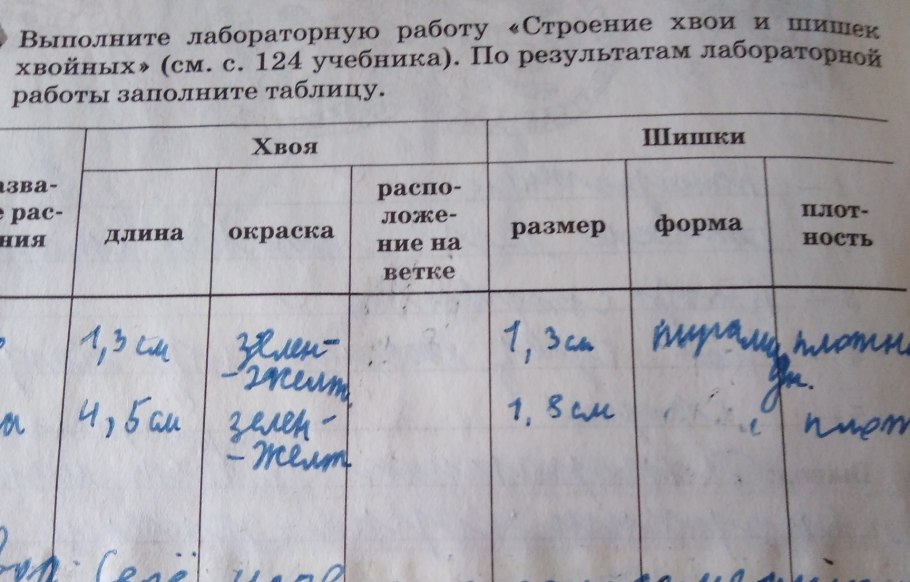 Выполните лабораторную работу «Строение хвои и шишек
хвойных» (см. с. 124 учебника). По результатам лабораторной
работы заполните таблицу.
Хвоя Шишки
азва-
е рас-
ния
длина окраска
распо-
ложе-
ние на
ветке
размер форма
плот-
ность
1,3 см зелен-
-желт. 1,3 см пирамидн. плотн
4,5 см зелен-
-желт 1,8 см " плот